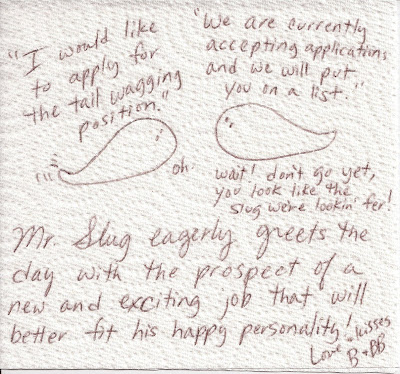 "I would like
to apply for
the tail wagging
position."
"We are currently
accepting applications
and we will put
you on a list."
oh.
wait! don't go yet,
you look like the
slug we're lookin' fer!
Mr. Slug eagerly greets the
day with the prospect of a
new and exciting job that will
better fit his happy personality!
Love + kisses
B + BB